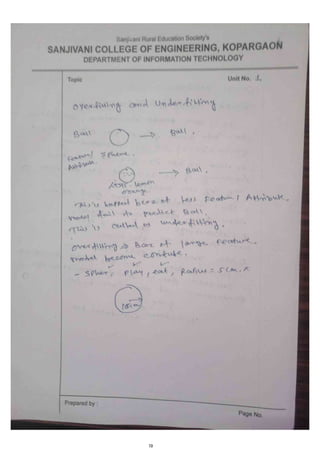 Sanjivani Rural Education Society's
SANJIVANI COLLEGE OF ENGINEERING, KOPARGAON
DEPARTMENT OF INFORMATION TECHNOLOGY
Topic Unit No. 1.
Overfitting and Underfitting
Ball → Ball.
Feature/ Sphere.
Attribute
→ Ball.
lemon
orange
This is because of less Featur / Attribute,
model fail to predict Ball.
This is called as underfitting.
overfitting ⇒ of large Feature
model become confuse.
- Spher, Play, eat, Radius = 5cm. ×
Prepared by :
Page No.